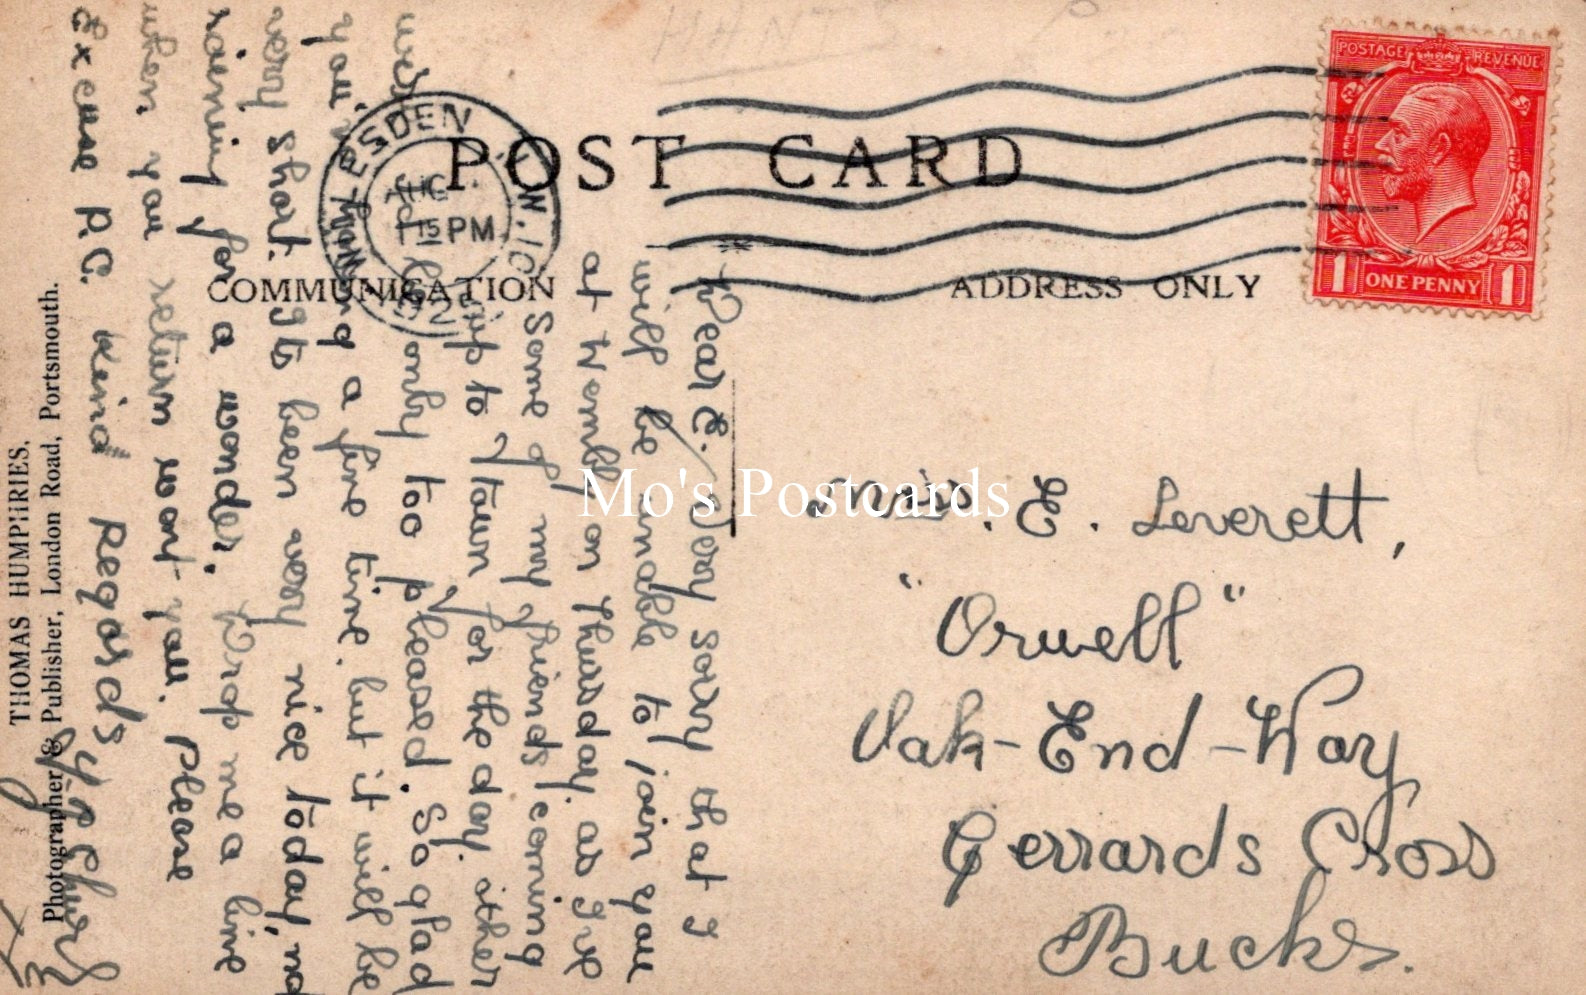 POST CARD
COMMUNICATION
ADDRESS ONLY
POSTAGE REVENUE
1 ONE PENNY 1
WILLESDEN N.W.10
15 PM
AUG
192
Dear E. Very sorry that I
will be unable to join you
at Wembly on Thursday. as I've
some of my friends coming
up to Town for the day. other
only too pleased. So glad
a fine time. but it will be
very short. Its been very nice today, no
raining for a wonder. Drop me a line
when you return wont you. Please
Excuse P.C. Kind Regards,
Miss. E. Leverett,
"Orwell"
Oak-End-Way
Gerrards Cross
Bucks.
THOMAS HUMPHRIES.
Photographer & Publisher, London Road, Portsmouth.
Mo's Postcards